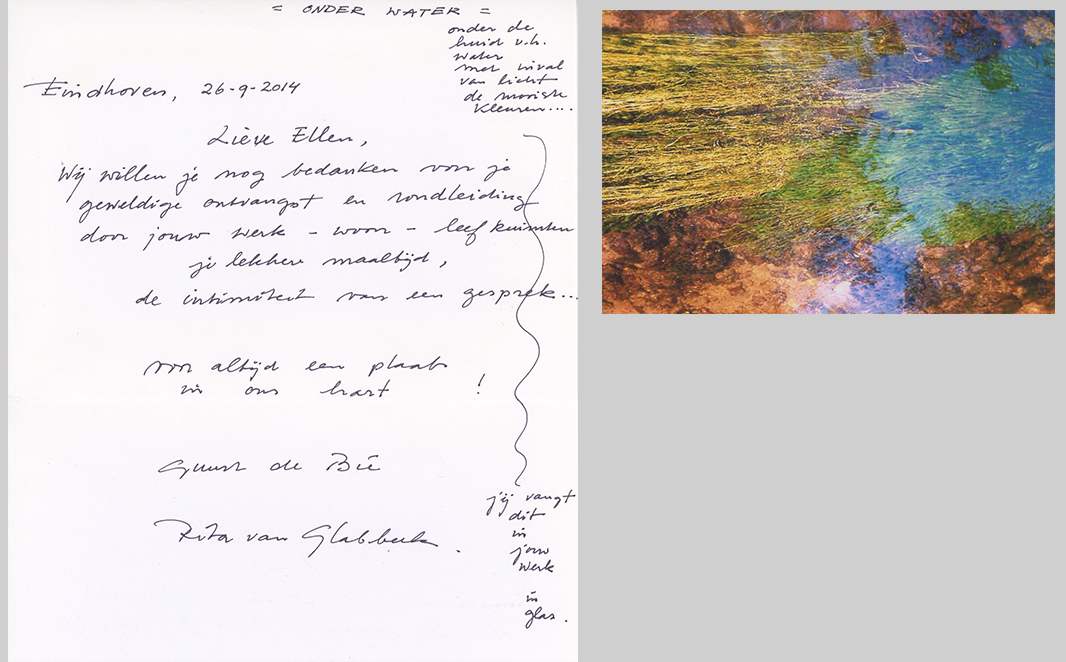 = ONDER WATER =
onder de
huid v.h.
water
met inval
van licht
de mooiste
kleuren....
Eindhoven, 26-9-2014
Lieve Ellen,
Wij willen je nog bedanken voor je
geweldige ontvangst en rondleiding
door jouw werk - woon - leef ruimten
je lekkere maaltijd,
de intimiteit van een gesprek...
voor altijd een plaats
in ons hart !
Guust de Bie
Rita van Glabbeek.
jij vangt
dit
in
jouw
werk
in
glas.